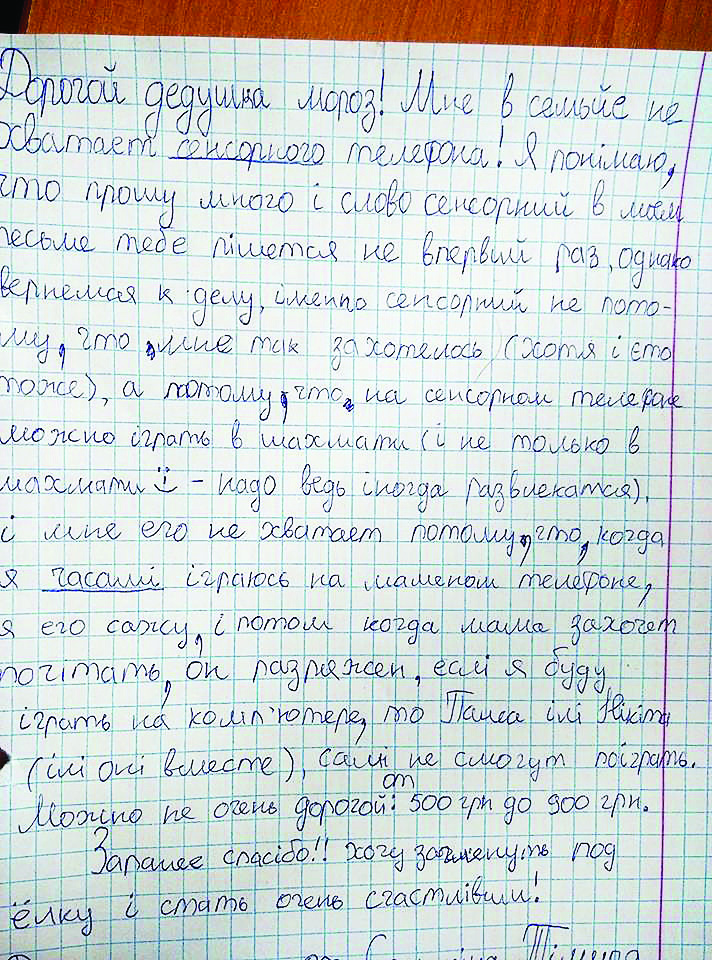 Дорогой дедушка мороз! Мне в семьйе не
хватает сенсорного телефона! Я понімаю,
что прошу много і слово сенсорний в моем
песьме тебе пішется не впервий раз, однако
вернемся к делу, іменно сенсорний не пото-
му, что, мне так захотелось (хотя і єто
тоже), а потому, что, на сенсорном телефоне
можно іграть в шахмати (і не только в
шахмати :) - надо ведь іногда развлекатся),
і мне его не хватает потому, что, когда
я часамі іграюсь на маменом телефоне,
я его сажу, і потом когда мама захочет
почітать, он разряжен, еслі я буду
іграть на комп'ютере, то Папа ілі Нікіта
(ілі оні вместе), самі не смогут поіграть.
Можно не очень дорогой: от 500 грн до 900 грн.
Заранее спасібо!! хочу заглянуть под
ёлку і стать очень счастлівим!